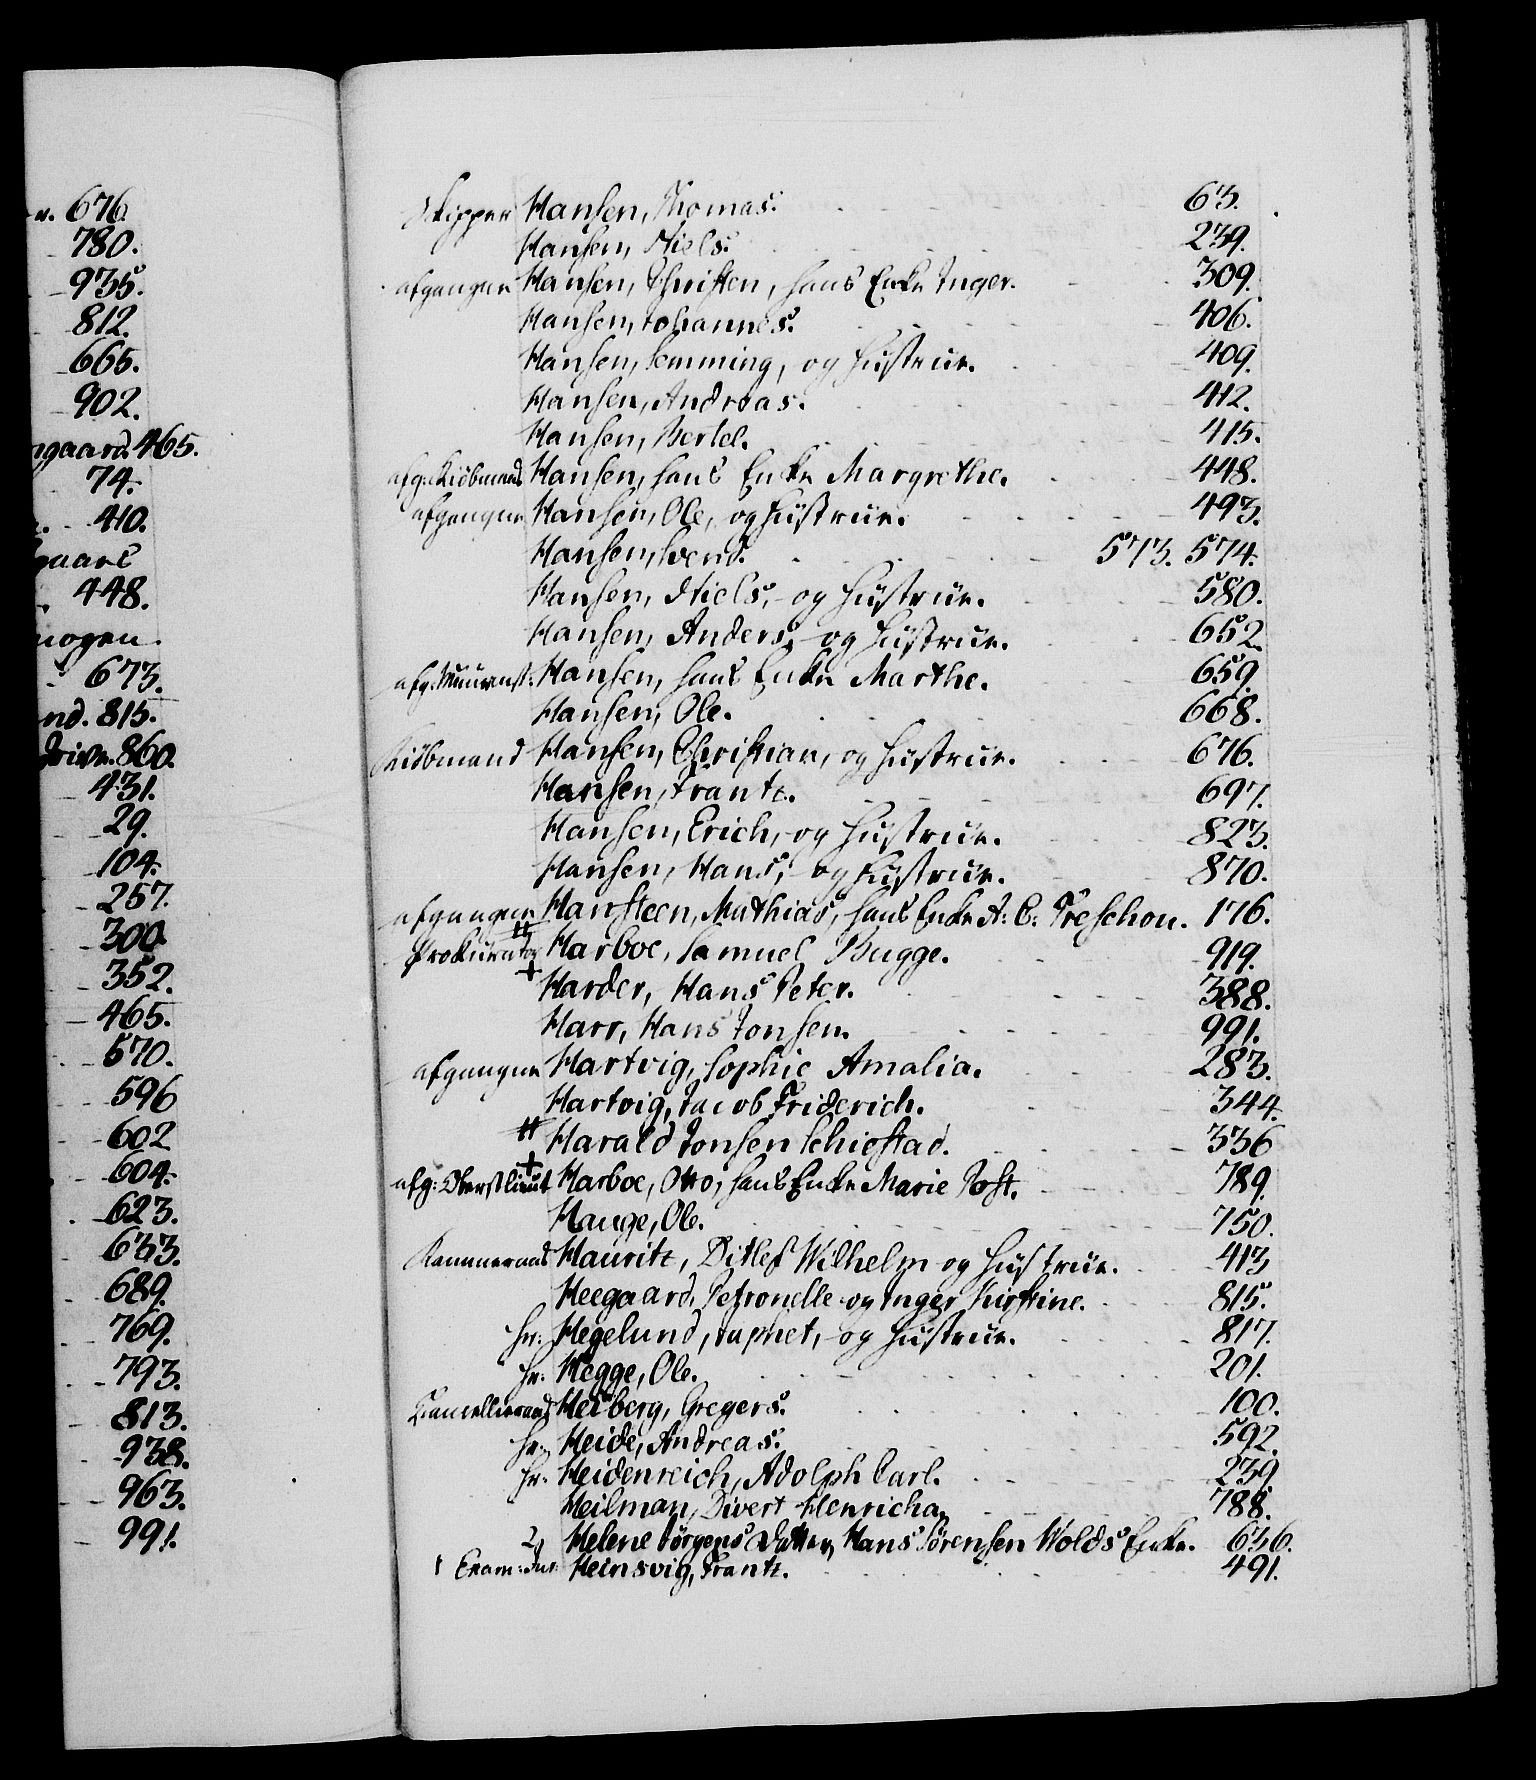 676.
780.
935.
812.
665.
902.
gaard. 465.
74.
410.
gaard
448.
673.
nd. 815.
860.
431.
29.
104.
257.
300.
352.
465.
570.
596
602
604.
623.
633.
689.
769.
793.
813.
938.
963.
991.
Skipper Hansen, Thomas. 63.
Hansen, Niels. 239.
afgangne Hansen, Christen, hans Enke Inger. 309.
Hansen, Johannes. 406.
Hansen, Hemming, og Hustrue. 409.
Hansen, Andreas. 412.
Hansen, Bertel. 415.
afg: Kiöbmand Hansen, hans Enke Margrethe. 448.
afgangne Hansen, Ole, og Hustrue. 493.
Hansen, Svend. 573. 574.
Hansen, Niels, og Hustrue. 580.
Hansen, Anders, og Hustrue. 652.
afg: Muurmst: Hansen, hans Enke Marthe. 659.
Hansen, Ole. 668.
Kiöbmand Hansen, Christian, og Hustrue. 676.
Hansen, Frantz. 697.
Hansen, Erich, og Hustrue. 823.
Hansen, Hans, og Hustrue. 870.
afgangne Hansteen, Mathias, hans Enke A: C: Treschou. 176.
Prokurator Harboe, Samuel Bugge. 919.
Harder, Hans Peter. 388.
Harr, Hans Jonsen. 991.
afgangne Hartvig, Sophie Amalia. 283.
Hartvig, Jacob Friderich. 344.
# Harald Jonsen Schiefstad. 336
afg: Oberstlieut + Harboe, Otto, hans Enke Marie Post. 789.
Hauge, Ole. 750.
Kammerraad Hauritz, Ditlef Wilhelm og Hustrue. 413
Heegaard, Petronelle og Inger Kirstine. 815.
Hr: Hegelund, Japhet, og Hustrue. 817.
Hr: Hegge, Ole. 201.
Kancellieraad Heiberg, Gregers. 100.
Hr: Heide, Andreas. 592.
Hr: Heidenreich, Adolph Carl. 239
Heilman, Divert Henricha 788.
2, Helene Jörgens Datter, Hans Sörensen Wolds Enke. 636.
1 Exam: Jur: Heinsvig, Frantz. 491.